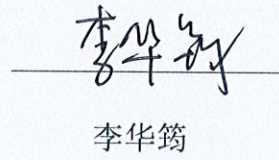 李华筠
李华筠